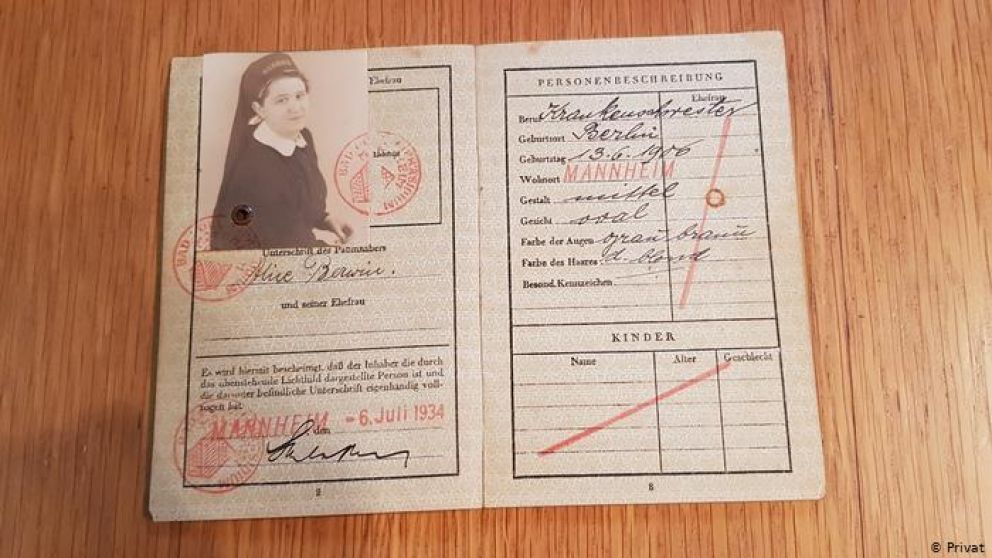 Ehefrau
BAD
PRÄSIDIUM
Unterschrift des Paßinhabers
Alice Berwin.
und seiner Ehefrau
Es wird hiermit bescheinigt, daß der Inhaber die durch
das obenstehende Lichtbild dargestellte Person ist und
die darunter befindliche Unterschrift eigenhändig voll-
zogen hat.
MANNHEIM den - 6. Juli 1934
PERSONENBESCHREIBUNG
Ehefrau
Beruf Krankenschwester
Geburtsort Berlin
Geburtstag 13.6.1906
Wohnort MANNHEIM
Gestalt mittel
Gesicht oval
Farbe der Augen grau braun
Farbe des Haares d. blond
Besond. Kennzeichen
KINDER
Name Alter Geschlecht
© Privat